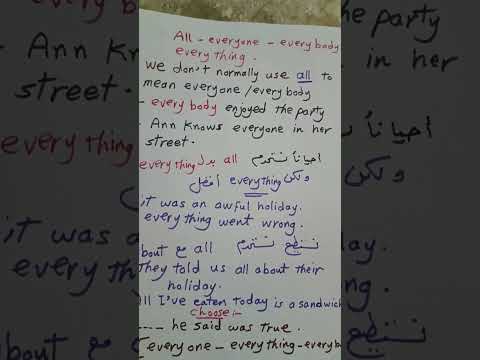 All - everyone - everybody
everything.
we don't normally use all to
mean everyone/everybody
- every body enjoyed the party
. Ann knows everyone in her
street.
أحياناً نستخدم all بدل everything
ولكن everything أفضل
it was an awful holiday.
everything went wrong.
نستطيع نستخدم all مع about
They told us all about their
holiday.
All I've eaten today is a sandwich
choose:-
---- he said was true.
[everyone - everything - everybody